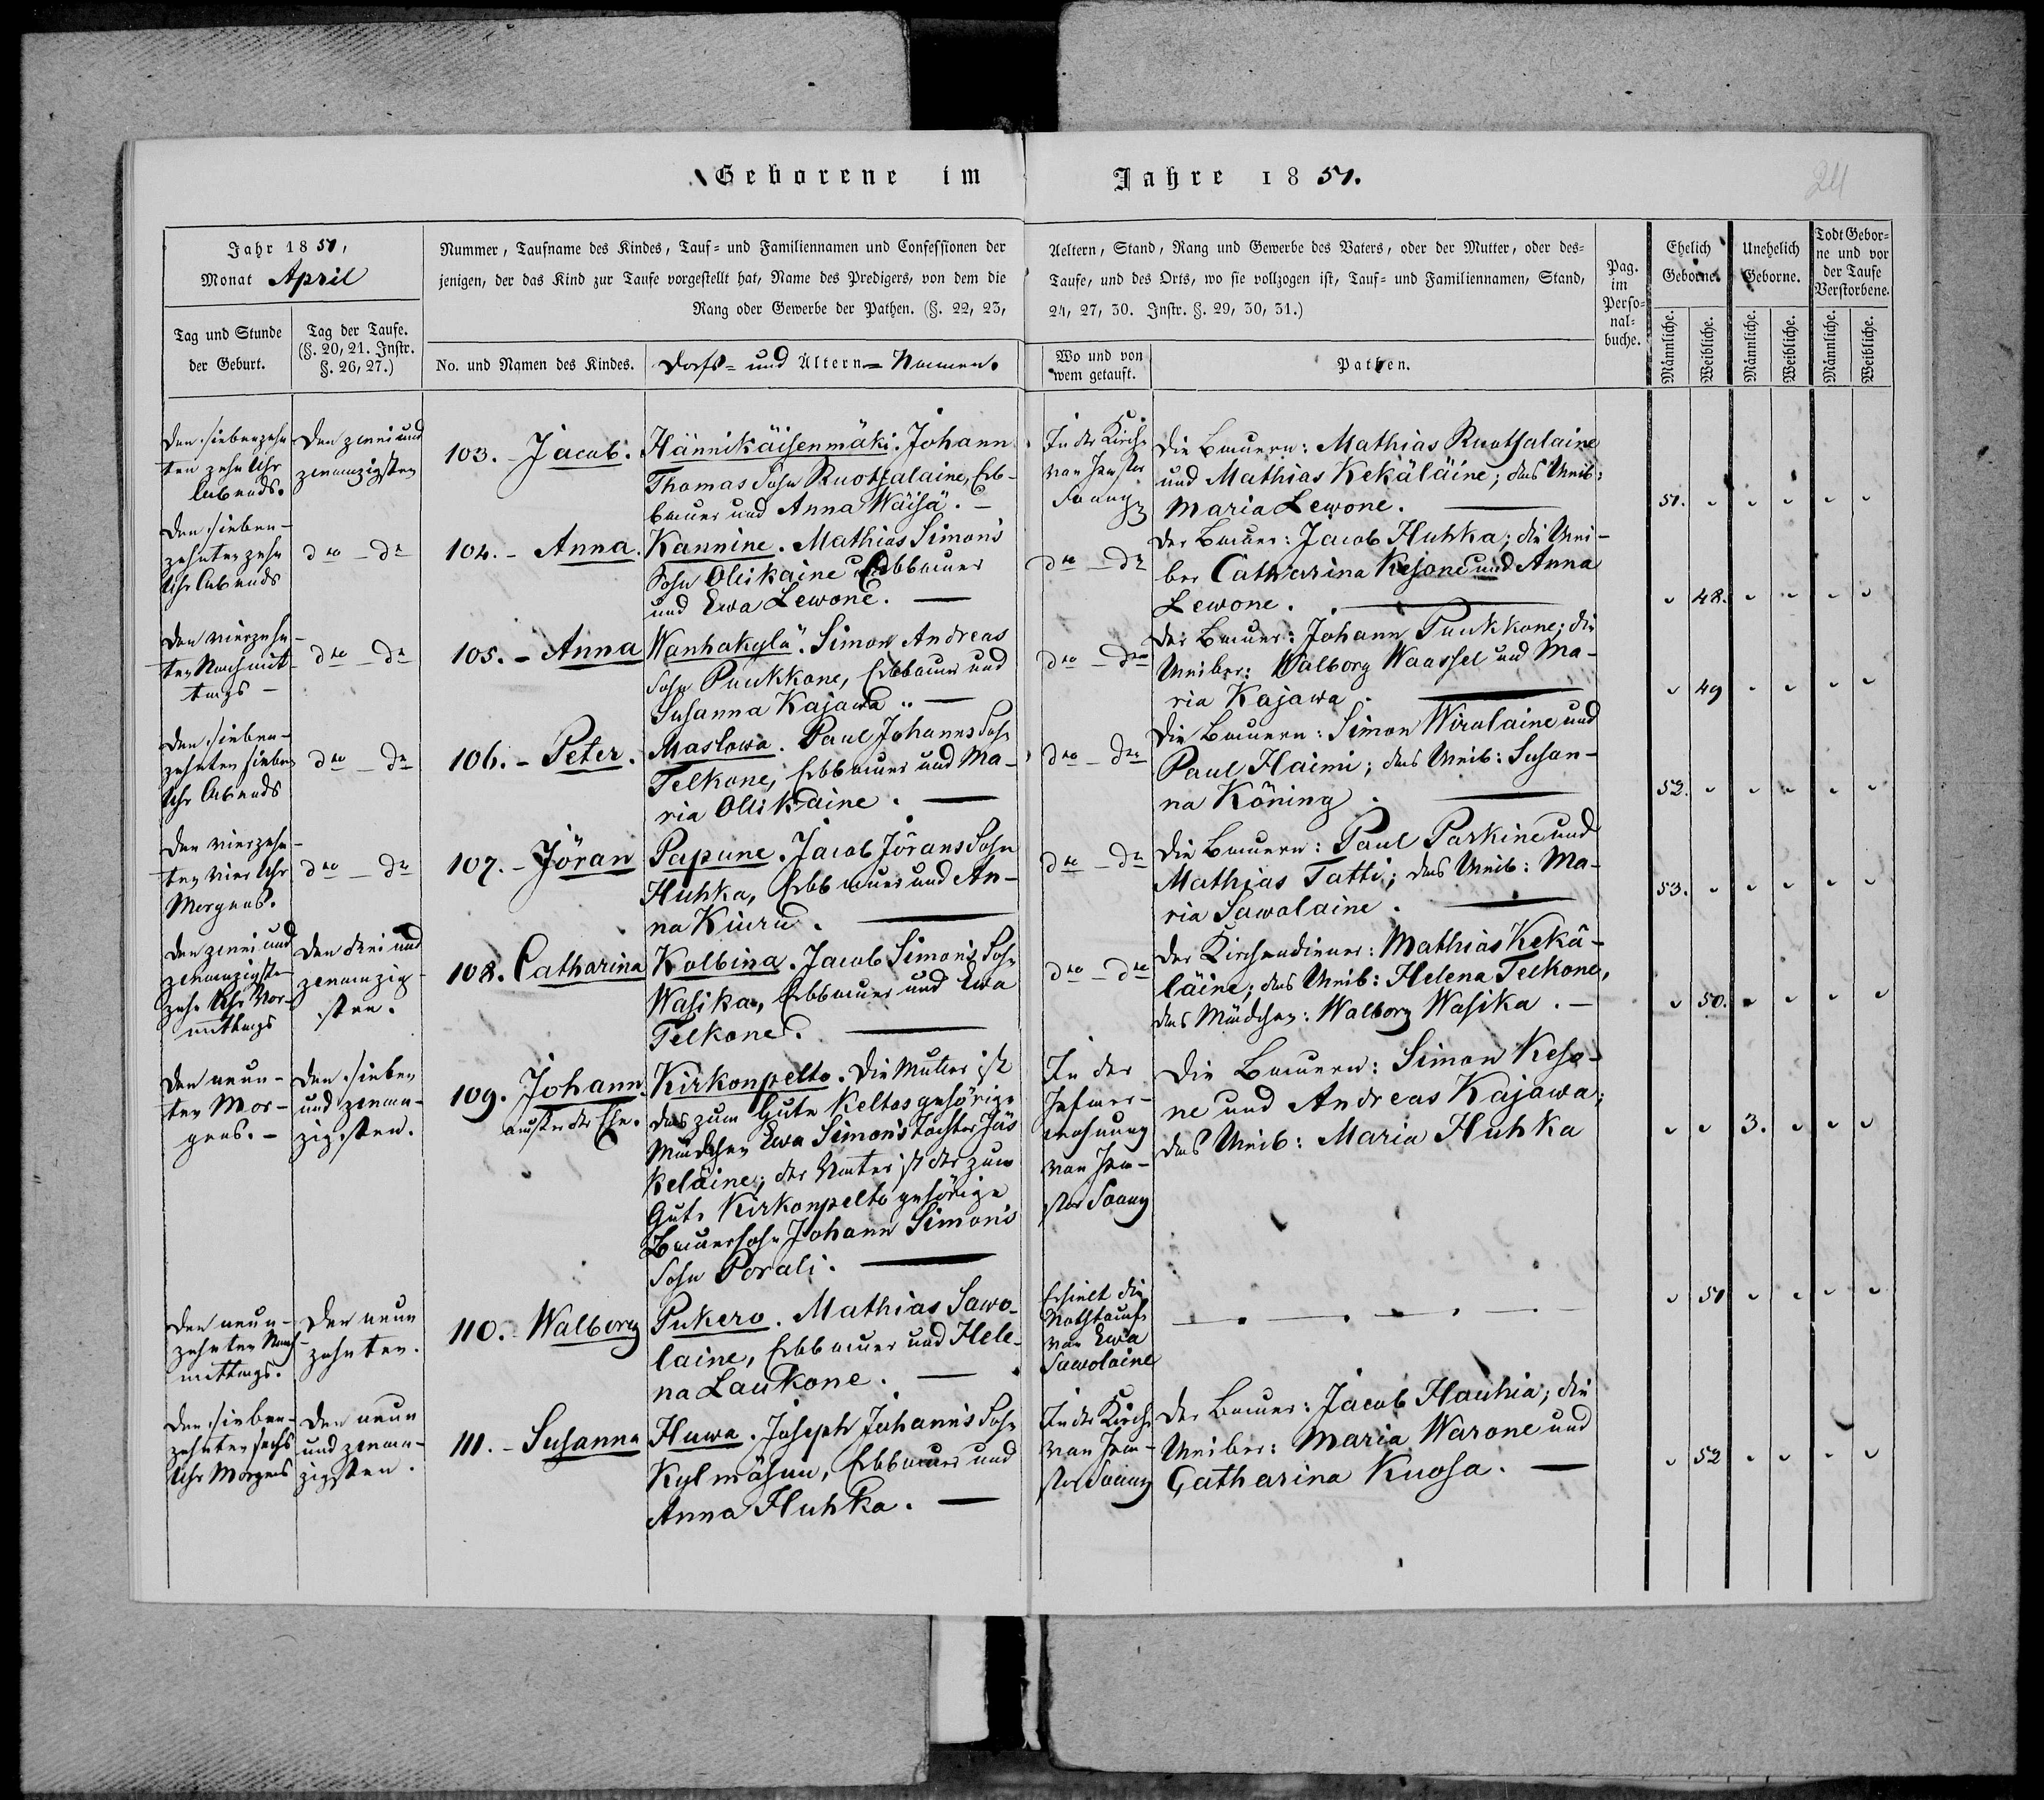 Geborene im Jahre 1851.
24
Jahr 1851,
Monat April
Nummer, Taufname des Kindes, Tauf- und Familiennamen und Confessionen der
jenigen, der das Kind zur Taufe vorgestellt hat, Name des Predigers, von dem die
Rang oder Gewerbe der Pathen. (§. 22, 23,
Aeltern, Stand, Rang und Gewerbe des Vaters, oder der Mutter, oder des-
Taufe, und des Orts, wo sie vollzogen ist, Tauf- und Familiennamen, Stand,
24, 27, 30. Instr. §. 29, 30, 31.)
Pag.
im
Perso-
nal-
buche.
Ehelich
Geborne.
Unehelich
Geborne.
Todt Gebor-
ne und vor
der Taufe
Verstorbene.
Tag und Stunde
der Geburt.
Tag der Taufe.
(§. 20, 21. Instr.
§. 26, 27.)
No. und Namen des Kindes.
Dorfs- und Ältern-Namen.
Wo und von
wem getauft.
Pathen.
Männliche.
Weibliche.
Männliche.
Weibliche.
Männliche.
Weibliche.
Den siebenzehn
ten zehn Uhr
Abends.
Den zwei und
zwanzigsten
103. - Jacob.
Hännikäisenmäki. Johann
Thomas Sohn Ruotsalaine, Erb-
bauer und Anna Wäisä. -
In der Kirche
von
Die Bauern: Mathias Ruotsalaine
und Mathias Kekäläine; das Weib:
Maria Lewone.
51. " " " " "
Den sieben-
zehnten zehn
Uhr Abends
dto - do
104. - Anna.
Kannine. Mathias Simon's
Sohn Ollikaine Erbbauer
und Ewa Lewone. -
dto - do
Der Bauer: Jacob Huhka; die Wei-
ber Catharina Kesone und Anna
Lewone.
" 48. " " " "
Den vierzehn-
ten Nachmit-
tags -
dto - do
105. - Anna
Wanhakylä. Simon Andreas
Sohn Puukkone, Erbbauer und
Susanna Kajawa. -
dto - dto
Der Bauer: Johann Puukkone; die
Weiber: Walborg Waassel und Ma-
ria Kajawa.
" 49 " " " "
Den sieben-
zehnten sieben
Uhr Abends
dto - do
106. - Peter.
Maslowa. Paul Johanns Sohn
Telkone, Erbbauer und Ma-
ria Ollikaine. -
dto - dto
Die Bauern: Simon Wirolaine und
Paul Haimi; das Weib: Susan-
na Köning.
52. " " " " "
Den vierzehn-
ten vier Uhr
Morgens.
dto - do
107. - Jöran
Papune. Jacob Jörans Sohn
Huhka, Erbbauer und An-
na Kiuru.
dto - do
Die Bauern: Paul Parkine und
Mathias Tatti; das Weib: Ma-
ria Sawolaine.
53. " " " " "
Den zwei und
zwanzigsten
zehn Uhr Vor-
mittags
Den drei und
zwanzig-
sten.
108. Catharina
Kolbina. Jacob Simon's Sohn
Wasika, Erbbauer und Ewa
Telkone.
dto - dto
Der Kirchendiener: Mathias Kekä-
läine; das Weib: Helena Telkone,
das Mädchen: Walborg Wasika. -
" 50. " " " "
Den neun-
ten Mor-
gens. -
Den sieben
und zwan-
zigsten.
109. Johann.
außer der Ehe.
Kirkonpelto. Die Mutter ist
das zum Gute Keltos gehörige
Mädchen Ewa Simon's Tochter Jäs
keläine; der Vater ist der zum
Gute Kirkonpelto gehörige
Bauersohn Johann Simon's
Sohn Porali.
In der
wohnung
von
Die Bauern: Simon Keso-
ne und Andreas Kajawa;
das Weib: Maria Huhka
" " 3. " " "
Den neun-
zehnten Nach-
mittags.
Den neun
zehnten.
110. - Walborg
Pukero. Mathias Sawo-
laine, Erbbauer und Hele-
na Laukone. -
Erhielt die
Nothtaufe
von Ewa
Sawolaine
" 51 " " " "
Den sieben-
zehnten sechs
Uhr Morgens
Den neun
und zwan-
zigsten.
111. - Susanna
Huwa. Joseph Johann's Sohn
Kylmähuu, Erbbauer und
Anna Huhka. -
In der Kirche
von
Der Bauer: Jacob Hauhia; die
Weiber: Maria Warone und
Catharina Kuosa. -
" 52 " " " "